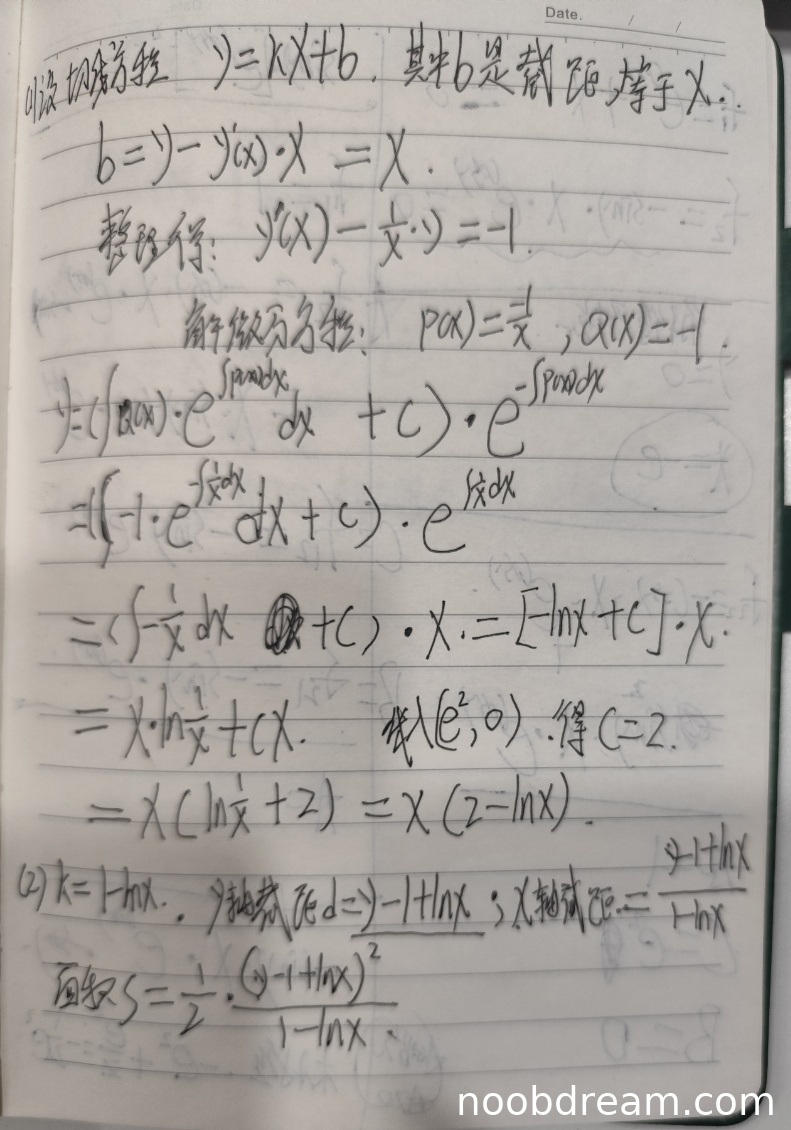 Date. / /
(1)设切线方程 y=kx+b. 其中b是截距,等于x.
b=y-y'(x)·x =x.
整理得: y'(x)-1/x·y=-1.
解微分方程: p(x)=-1/x, Q(x)=-1.
y=(∫Q(x)·e^{∫p(x)dx}dx +C)·e^{-∫p(x)dx}
=(∫-1·e^{-∫1/x dx}dx+C)·e^{∫1/x dx}
=(∫-1/x dx +C)·x.=[-lnx+C]·x.
=x·ln1/x+Cx. 代入(e²,0).得C=2.
=x(ln1/x+2)=x(2-lnx).
(2)k=1-lnx. y轴截距d=y-1+lnx; x轴截距=(y-1+lnx)/(1-lnx)
面积S=1/2·(y-1+lnx)²/(1-lnx).
noobdream.com